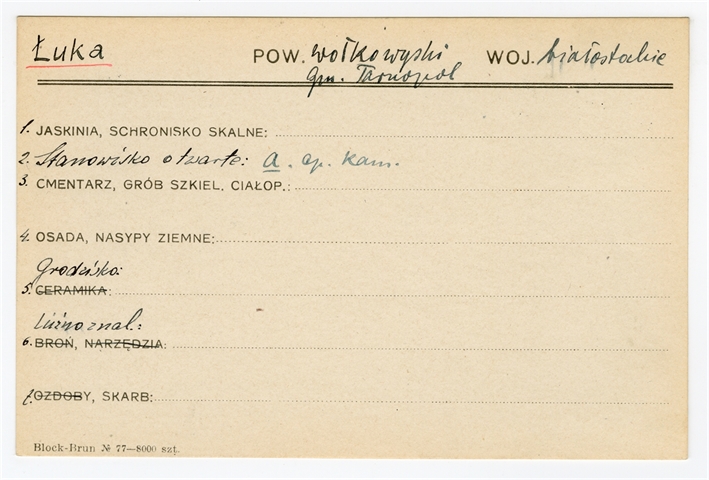 Łuka POW. wołkowyski WOJ. białostockie
gm. Tarnopol
1. JASKINIA, SCHRONISKO SKALNE:
2. Stanowisko otwarte: a. ep. kam.
3. CMENTARZ, GRÓB SZKIEL. CIAŁOP.:
4. OSADA, NASYPY ZIEMNE:
Grodzisko:
5. CERAMIKA:
Luźno znal.:
6. BROŃ, NARZĘDZIA:
7. OZDOBY, SKARB:
Block-Brun № 77—8000 szt.